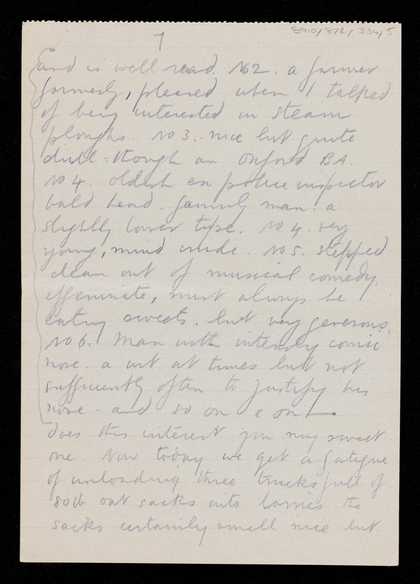 7
8910/872/334/5
and is well read. No2. a farmer
formerly, pleased when I talked
of being interested in steam
ploughs. No 3. nice but quite
dull - though an Oxford B.A.
No 4. oldish ex police inspector
bald head. family man. a
slightly lower type. No 4. very
young, mind rude. No 5. stepped
clean out of musical comedy.
effeminate, must always be
eating sweets. but very generous.
No 6. Man with intensely comic
nose. a wit at times but not
sufficiently often to justify his
nose - and so on & on -
Does this interest you my sweet
one. Now today we get a fatigue
of unloading three trucks full of
80lb oat sacks into lorries the
sacks certainly smell nice but